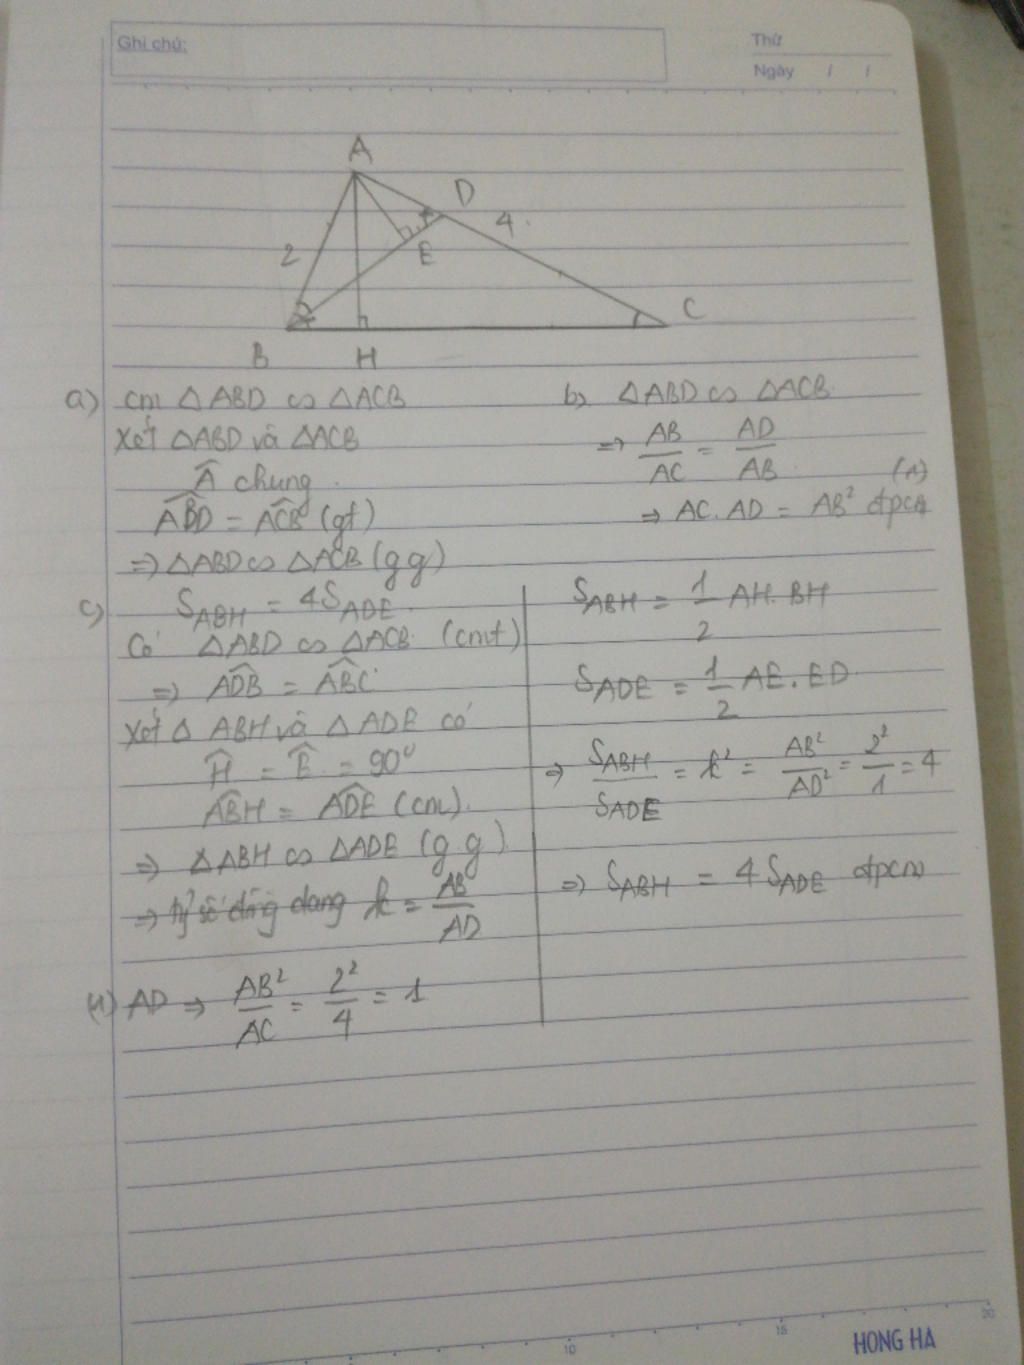 Ghi chú:
Thứ
Ngày / /
A
D
2
4
E
B
H
C
a) cm △ABD ∽ △ACB
Xét △ABD và △ACB
Â chung
ABD̂ = ACB̂ (gt)
⇒ △ABD ∽ △ACB (g g)
b, △ABD ∽ △ACB
⇒ AB/AC = AD/AB
⇒ AC. AD = AB² đpcm
c) S_ABH = 4S_ADE
Có △ABD ∽ △ACB (cmt)
⇒ ADB̂ = ABĈ
Xét △ ABH và △ ADE có
Ĥ = Ê = 90°
ABĤ = ADÊ (cm)
⇒ △ABH ∽ △ADE (g.g)
⇒ tỷ số đồng dạng k = AB/AD
AD ⇒ AB²/AC = 2²/4 = 1
S_ABH = 1/2 AH. BH
S_ADE = 1/2 AE. ED
⇒ S_ABH/S_ADE = k² = AB²/AD² = 2²/1 = 4
⇒ S_ABH = 4S_ADE đpcm
10
15
20
HONG HA